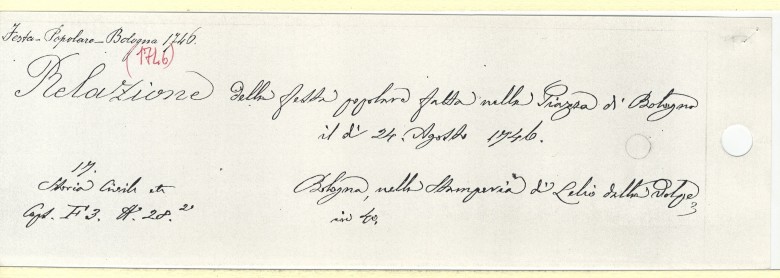 Festa - Popolare - Bologna 1746.
(1746)
Relazione della festa popolare fatta nella Piazza di Bologna
il dì 24. Agosto 1746.
17.
Storia Civile etc
Caps. F3. N. 28.²
Bologna, nella Stamperia di Lelio dalla Volpe
in 4º